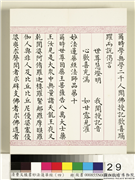 爾時學無學二千人聞佛授記歡喜踊
躍而說偈言
世尊慧燈明　我聞授記音
心歡喜充滿　如甘露見灌
妙法蓮華經法師品第十
爾時世尊因藥王菩薩告八萬大士藥
王汝見是大眾中無量諸天龍王夜叉
乾闥婆阿修羅迦樓羅緊那羅摩睺羅
伽人與非人及比丘比丘尼優婆塞優
婆夷求聲聞者求辟支佛者求佛道者
29